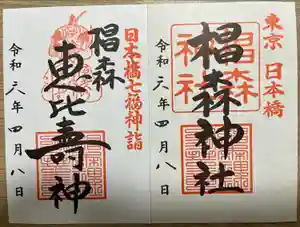 東京 日本橋
椙森神社
令和六年四月八日
日本橋七福神詣
椙森
恵比寿神
令和六年四月八日